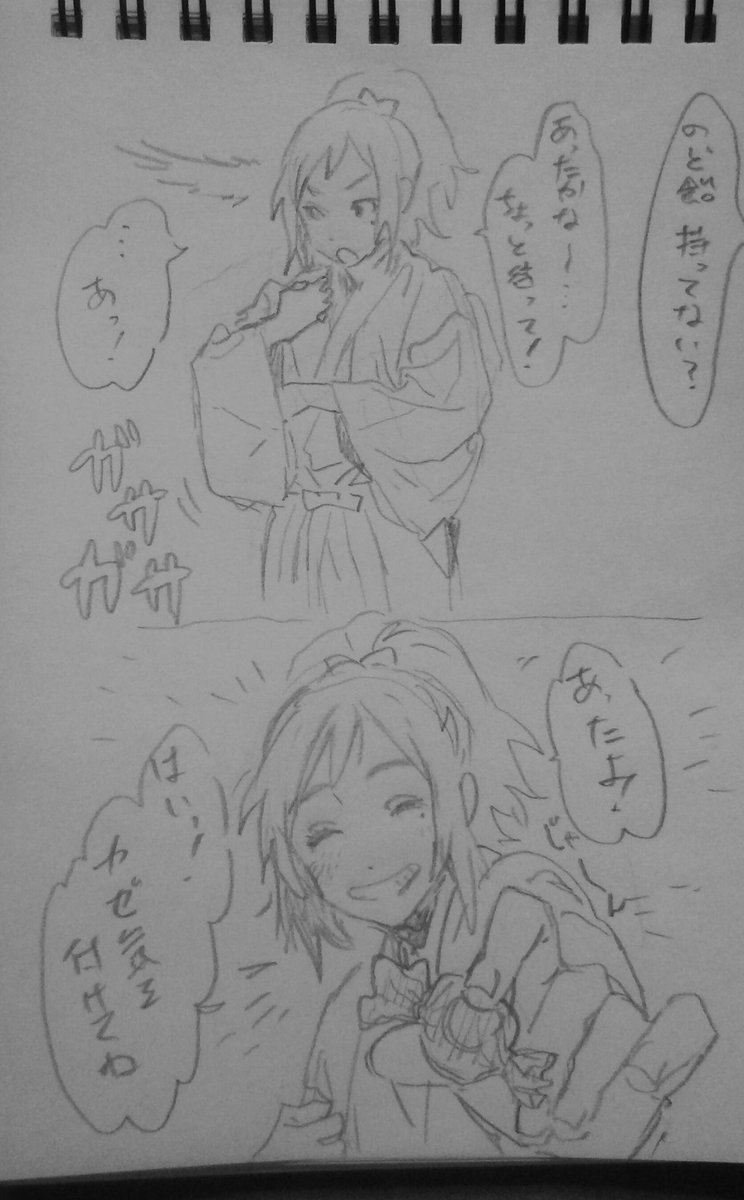 のど飴 持ってない?
あったかなー…
ちょっと待って!
…あっ!
ガサ
ガサ
あったよ!
じゃーん
はいっ!
カゼ気を
付けてね